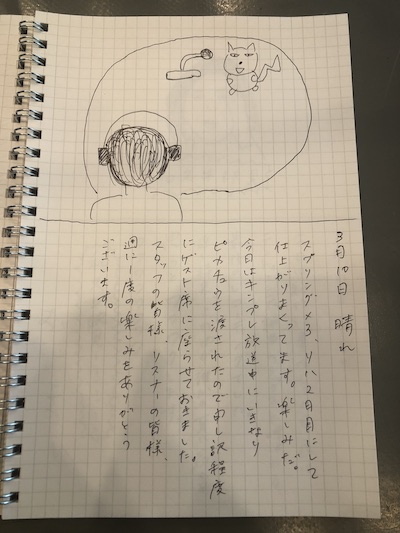 3月10日 晴れ
スプリングメ3、リハ2日目にして
仕上がりまくってます。楽しみだ。
今日はキンプレ放送中にいきなり
ピカチュウを渡されたので申し訳程度
にゲスト席に座らせておきました。
スタッフの皆様、リスナーの皆様、
週に1度の楽しみをありがとう
ございます。